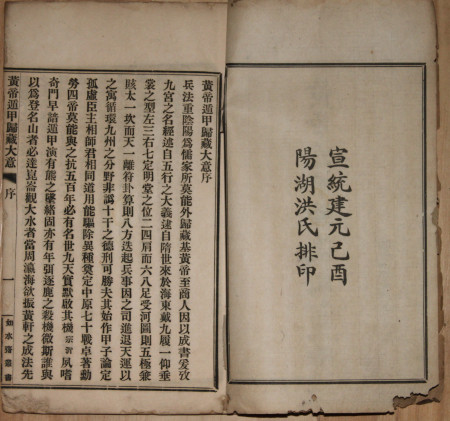 宣統建元己酉
陽湖洪氏排印
黃帝遁甲歸藏大意序
兵法重陰陽爲儒家所莫能外歸藏基黃帝至商人因以成書爰攷
九宮之名經述自五行之大義逮自隋世來於海東戴九履一仰垂
裳之型左三右七定明堂之位二四肩而六八足受河圖則五極兼
賅太一坎而天一離符卦算則八方迭起兵事因之司進退天運以
之寓循環九州之分野非譌十干之德刑可勝夫其始作甲子論定
孤虛臣主相師君相同道用能驅除異種奠定中原七十戰卓著勳
勞四帝莫能與之抗五百年必有名世九天實默啟其機宗沂夙嗜
奇門早諳遁甲演有熊之墜緒固亦有年弭逐鹿之殺機微斯誰與
以爲登名山者必達崑崙觀大水者當周瀛海欲張黃軒之成法先
黃帝遁甲歸藏大意
序
一
叢書